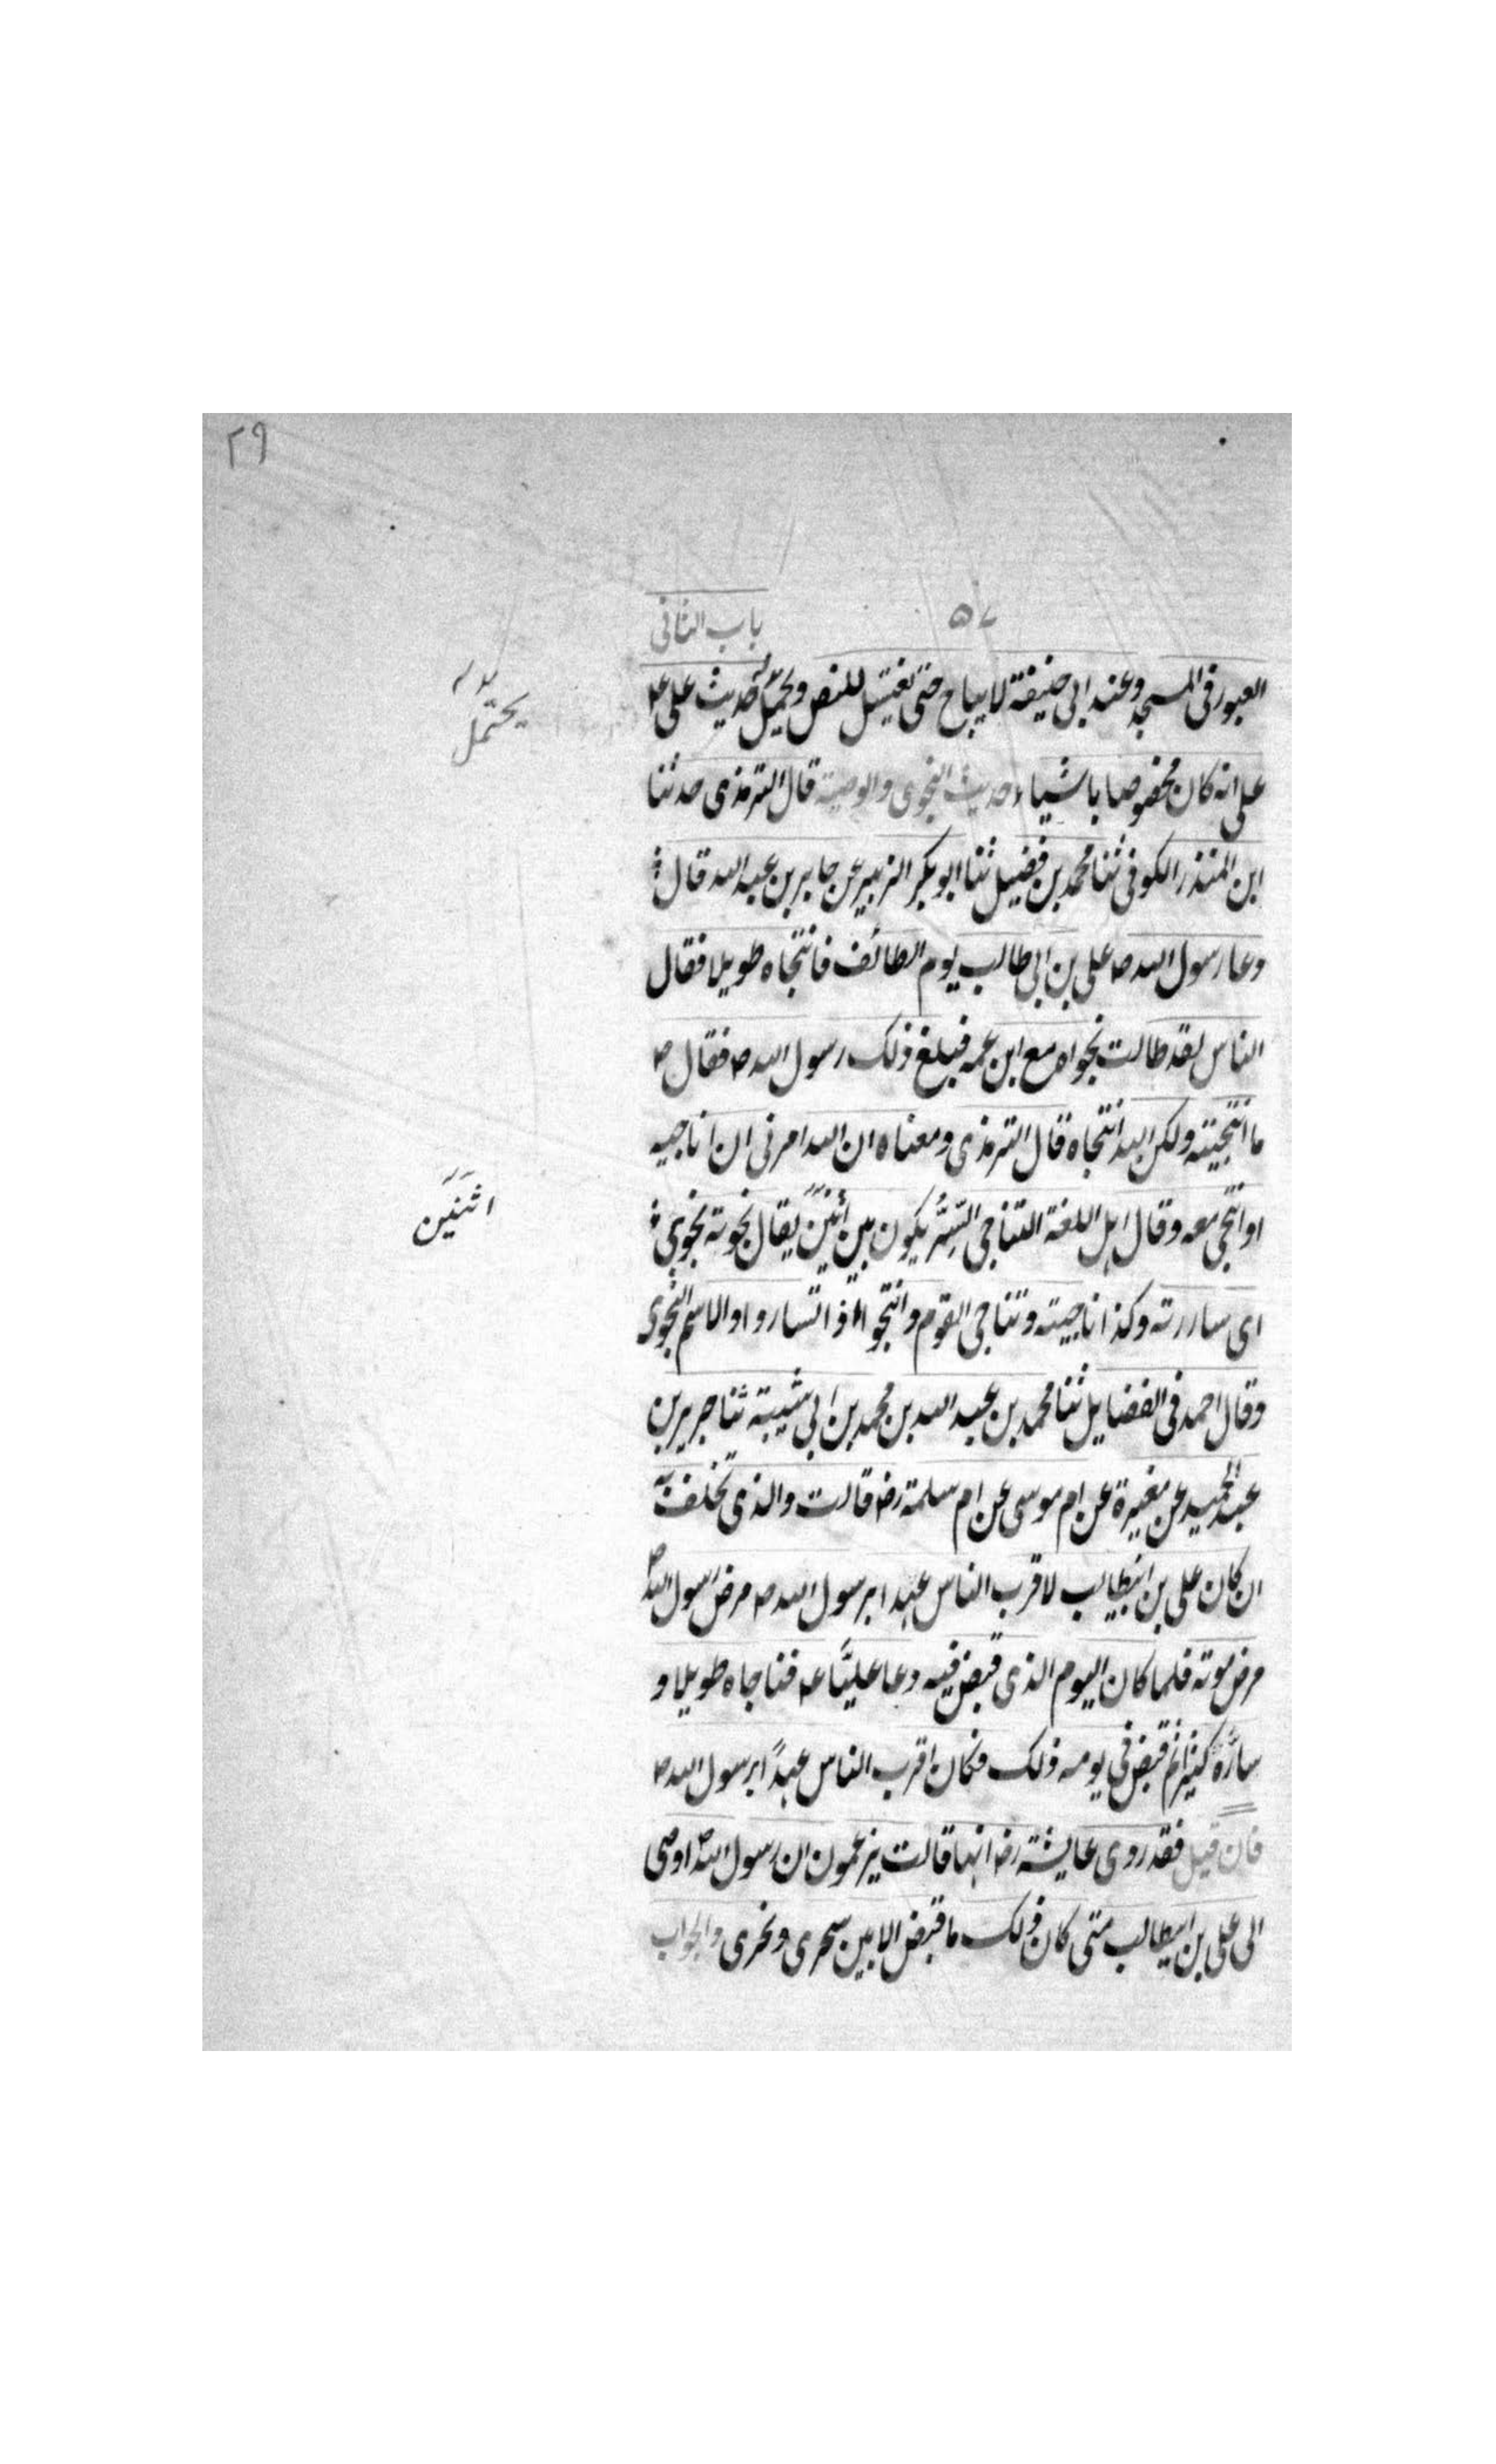 ٢٩
٥٧ باب الثانى
العبور فى المسجد وعند ابى حنيفة لا يباح حتى يغتسل للنص ويحمل حديث على ع
يحتمل
على انه كان مخصوصا باشياء حديث النجوى والوصية قال الترمذى حدثنا
ابن المنذر الكوفى ثنا محمد بن فضيل ثنا ابو بكر الزبير عن جابر بن عبد الله قال
دعا رسول الله ص على بن ابى طالب يوم الطائف فانتجاه طويلا فقال
الناس لقد طالت نجواه مع ابن عمه فبلغ ذلك رسول الله ص فقال ص
ما انتجيته ولكن الله انتجاه قال الترمذى ومعناه ان الله امرنى ان اناجيه
او انتجى معه وقال اهل اللغة التناجى السِّرُّ يكون بين اثنين يقال نجوته نجوى
اثنَين
اى ساررته وكذا ناجيته وتناجى القوم وانتجوا اذا تساروا والاسم النجوى
وقال احمد فى الفضايل ثنا محمد بن عبد الله بن محمد بن ابى شيبة ثنا جرير بن
عبد الحميد عن مغيرة عن ام موسى عن ام سلمة رض قالت والذى تحلف به
ان كان على بن ابيطالب لاقرب الناس عهدا برسول الله ص مرض رسول الله ص
مرض موته فلما كان اليوم الذى قبض فيه دعا عليًّا ع فناجاه طويلا و
سارَّه كثيرا ثم قبض فى يومه ذلك فكان اقرب الناس عهدًا برسول الله ص
فان قيل فقد روى عايشة رض انها قالت يزعمون ان رسول الله ص اوصى
الى على بن ابيطالب متى كان ذلك ما قبض الا بين سحرى ونحرى والجواب